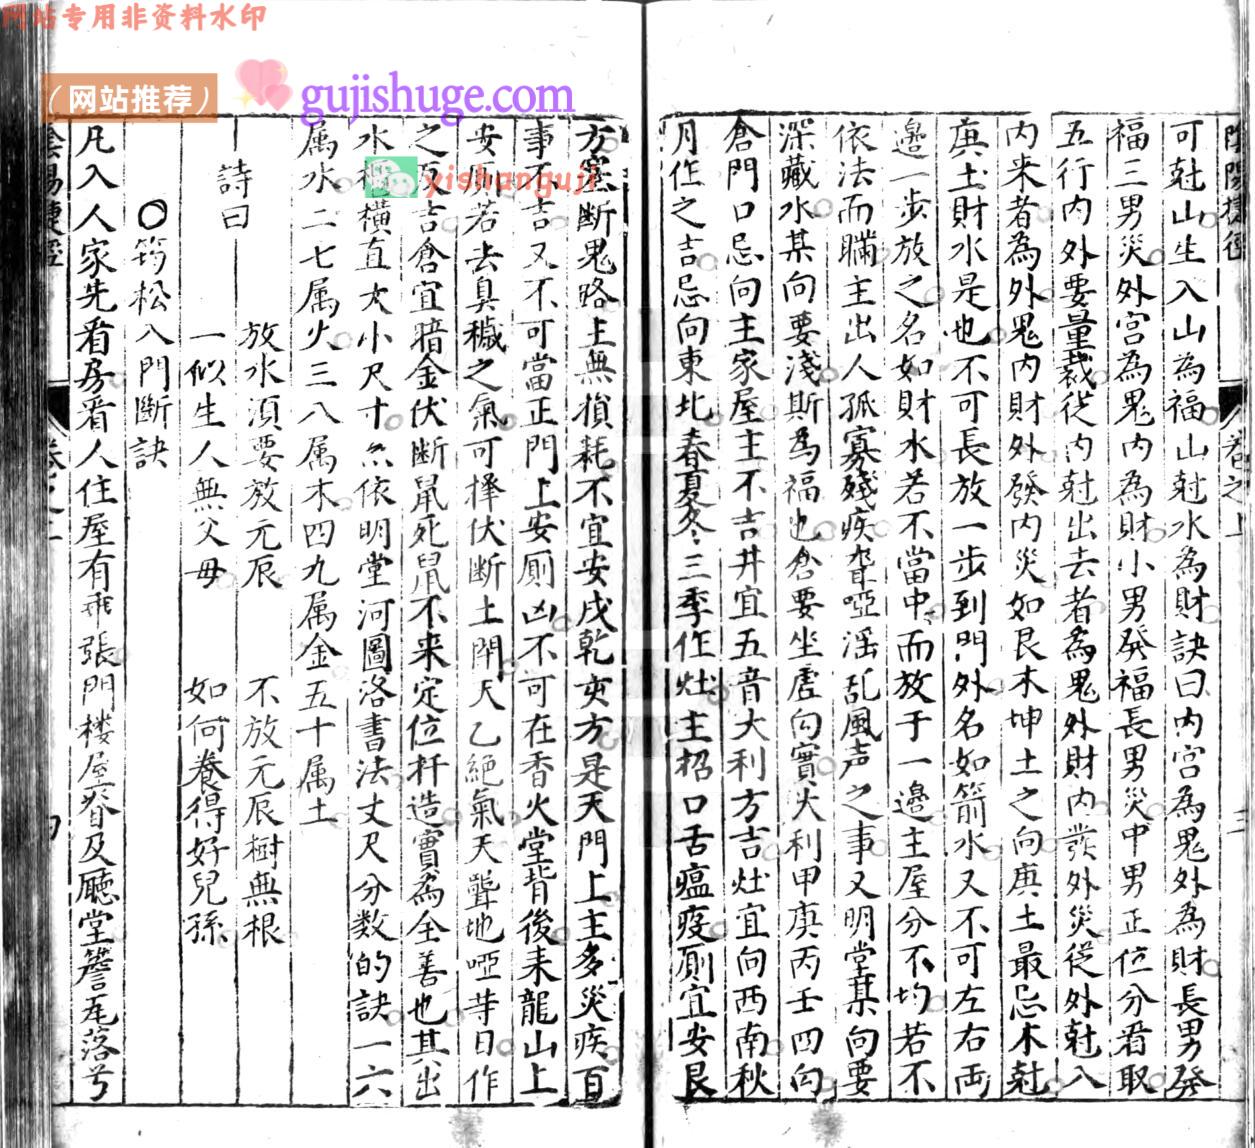 网站专用非资料水印
（网站推荐）
gujishuge.com
yishanguji
陰陽捷徑
卷之上
可尅山生入山為福山尅水為財訣曰內宮為鬼外為財長男發
福三男災外宮為鬼內為財小男發福長男災中男正位分看取
五行內外要量裁從內尅出去者為鬼外財內發外災從外尅入
內来者為外鬼內財外發內災如艮木坤土之向庚土最忌木尅
庚土財水是也不可長放一步到門外名如箭水又不可左右両
邊一步放之名如財水若不當中而放于一邊主屋分不均若不
依法而瞞主出人孤寡殘疾聾啞滛乱風声之事又明堂某向要
深藏水某向要淺斯為福也倉要坐虛向實大利甲庚丙壬四向
倉門口忌向主家屋主不吉井宜五音大利方吉灶宜向西南秋
月作之吉忌向東北春夏冬三季作灶主招口舌瘟疫厠宜安艮
方窒断鬼路主無損耗不宜安戌乾亥方是天門上主多災疾百
事不吉又不可當正門上安厠凶不可在香火堂背後来龍山上
安厠若去臭穢之氣可擇伏断土閉天乙絕氣天聾地啞等日作
之方吉倉宜暗金伏断鼠死鼠不来定位杆造實為全善也其出
水 橫直大小尺寸 依明堂河圖洛書法丈尺分数的訣一六
属水二七属火三八属木四九属金五十属土
詩曰
放水須要放元辰 不放元辰樹無根
一似生人無父母 如何養得好兒孫
○筠松入門断訣
凡入人家先看房看人住屋有乖張門楼屋脊及廳堂簷尾落兮
陰陽捷徑
卷之上
四